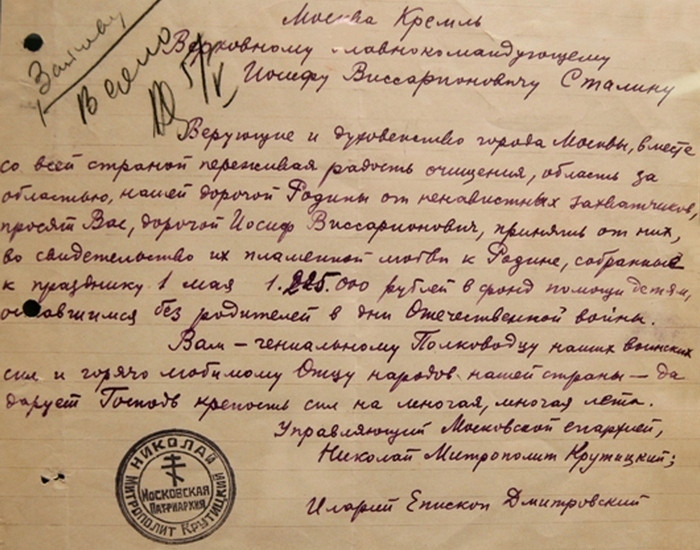 Москва Кремль
Верховному Главнокомандующему
Иосифу Виссарионовичу Сталину
5/V
Верующие и духовенство города Москвы, вместе
со всей страной переживая радость очищения, область за
областью, нашей дорогой Родины от ненавистных захватчиков,
просят Вас, дорогой Иосиф Виссарионович, принять от них,
во свидетельство их пламенной любви к Родине, собранные
к празднику 1 мая 1.225.000 рублей в фонд помощи детям,
оставшимся без родителей в дни Отечественной войны.
Вам – гениальному Полководцу наших воинских
сил и горячо любимому Отцу народов нашей страны – да
дарует Господь крепость сил на многая, многая лета.
Управляющий Московской епархией,
Николай Митрополит Крутицкий;
Иларий Епископ Дмитровский
НИКОЛАЙ
МОСКОВСКАЯ
ПАТРИАРХИЯ
МИТРОПОЛИТ КРУТИЦКИЙ